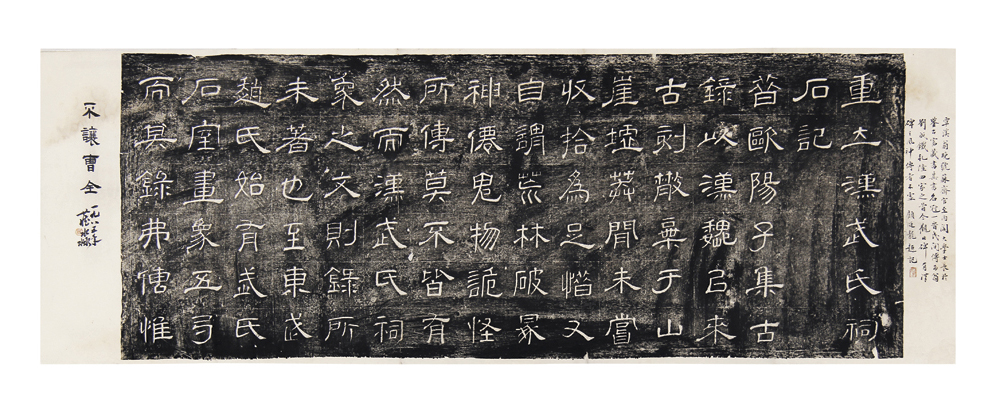 覃溪翁晚號蘇齋官至內閣大學士長於
重立漢武氏祠
石記
昔歐陽子集古
錄以漢魏以來
古刻散棄于山
崖墟莽閒未嘗
收拾為足惜又
自謂荒林破冢
神僊鬼物詭怪
所傳莫不皆有
然而漢武氏祠
象之文則錄所
未著也至東武
趙氏始有武氏
石室畫象五弓
而其錄弗傳惟
不讓曹全